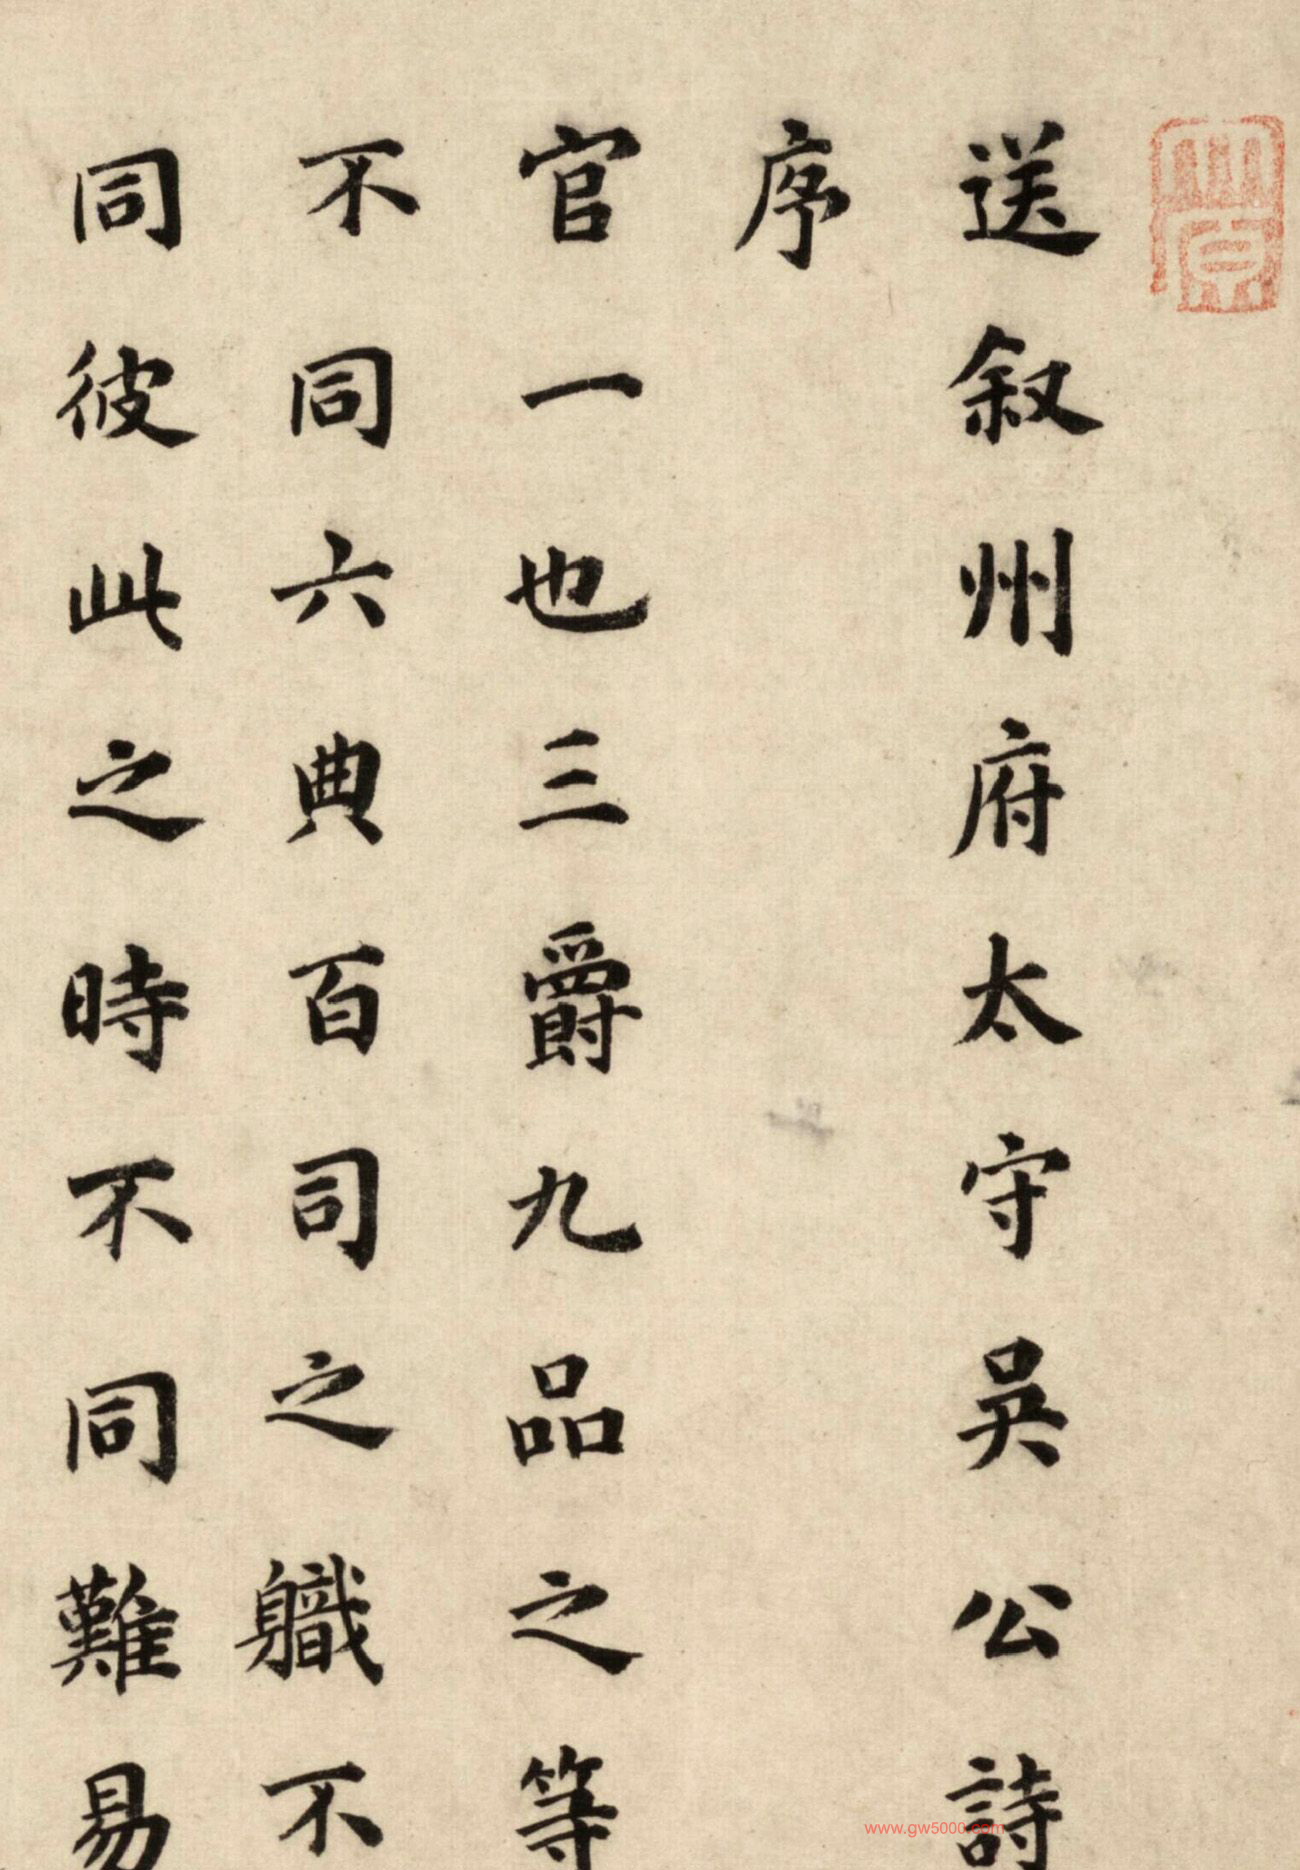 送叙州府太守吳公詩
序
官一也三爵九品之等
不同六典百司之軄不
同彼此之時不同難易
www.gw5000.com